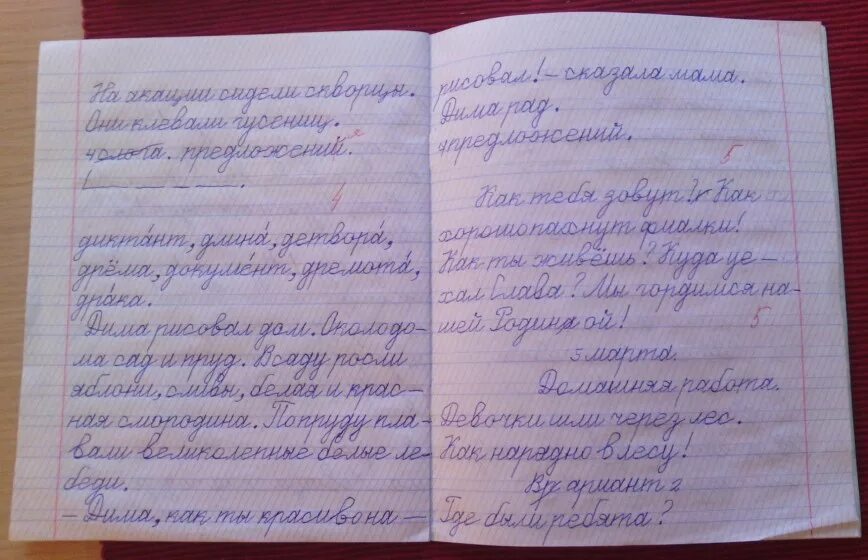 На акации сидели скворцы.
Они клевали гусениц.
4 предложений.
4
диктáнт, длинá, детворá,
дрёма, докумéнт, дремотá,
дрáка.
Дима рисовал дом. Около до-
ма сад и пруд. В саду росли
яблони, сливы, белая и крас-
ная смородина. По пруду пла-
вали великолепные белые ле-
беди.
– Дима, как ты красиво на –
рисовал! – сказала мама.
Дима рад.
7 предложений.
5
Как тебя зовут? Как
хорошо пахнут фиалки!
Как ты живёшь? Куда уе-
хал Слава? Мы гордимся на-
шей Родиной!
5
5 марта.
Домашняя работа.
Девочки шли через лес.
Как нарядно в лесу!
Вариант 2
Где были ребята?